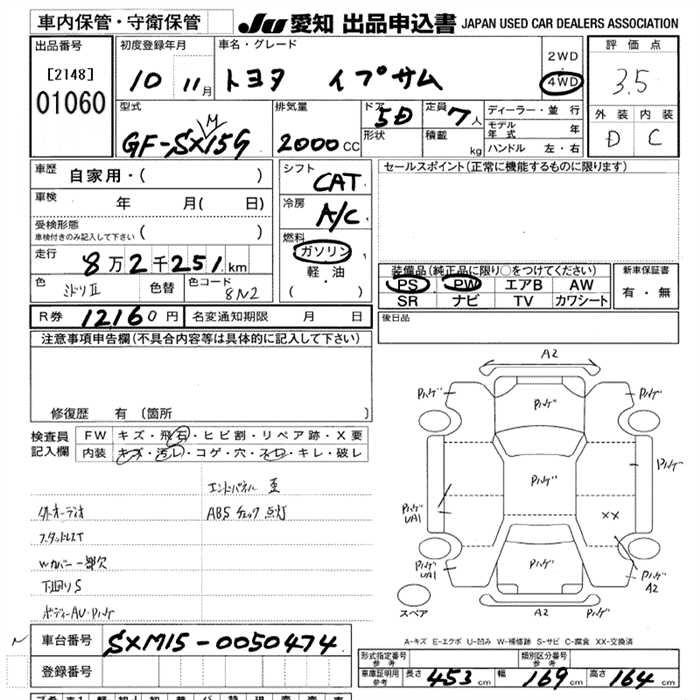 車内保管・守衛保管
JU 愛知 出品申込書 JAPAN USED CAR DEALERS ASSOCIATION
出品番号
[2148]
01060
初度登録年月
10 11月
車名・グレード
トヨタ イプサム
2WD
・
4WD
評価点
3.5
外装 内装
D C
型式
GF-SXM15G
排気量
2000 CC
ドア
5D
形状
定員
7人
積載
kg
ディーラー・並行
モデル年式 年
ハンドル 左・右
車歴
自家用・( )
車検
年 月( 日)
受検形態
車検付きのみ記入して下さい ( )
走行
8万2千251km
色
ミドリII
色替
色コード
8N2
シフト
CAT
冷房
A/C
燃料
ガソリン
軽・油
( ・ )
セールスポイント(正常に機能するものに限ります)
装備品(純正品に限り○をつけてください)
PS PW エアB AW
SR ナビ TV カワシート
新車保証書
有・無
R券 12160円 名変通知期限 月 日
後日品
注意事項申告欄(不具合内容等は具体的に記入して下さい)
修復歴 有 (箇所
検査員記入欄
FW キズ・飛石・ヒビ割・リペア跡・X要
内装 キズ・汚レ・コゲ・穴・スレ・キレ・破レ
エンドパネル 歪
外オーディオ
ABS チェック 点灯
スタットレスT
Wカバー 一部欠
下回りS
ボディーAU・ハゲ
A2
ハゲ
ハゲ
ハゲ
ハゲ
ハゲ
ハゲ
UA1
××
ハゲ
UA1
ハゲ
ハゲ
A2
スペア
A2
A-キズ E-エクボ U-凹み W-補修跡 S-サビ C-腐食 XX-交換済
車台番号 SXM15-0050474
登録番号
型式指定番号
参考
類別区分番号
参考
車庫証明用
参考
長さ 453 cm 幅 169 cm 高さ 164 cm